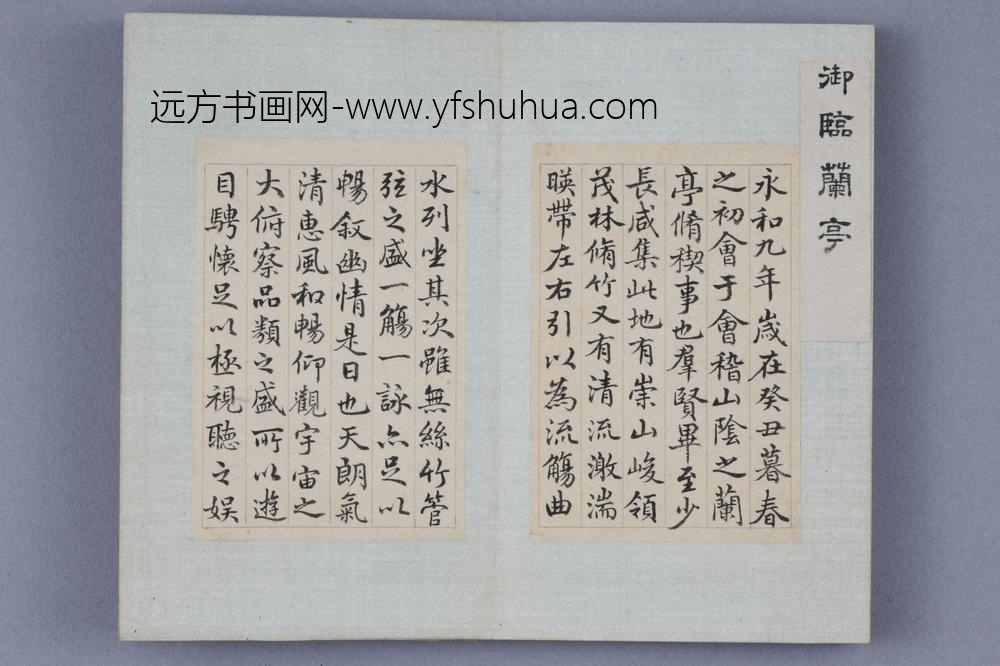 远方书画网-www.yfshuhua.com
御臨蘭亭
永和九年歲在癸丑暮春
之初會于會稽山陰之蘭
亭脩稧事也羣賢畢至少
長咸集此地有崇山峻領
茂林脩竹又有清流激湍
暎帶左右引以為流觴曲
水列坐其次雖無絲竹管
弦之盛一觴一詠亦足以
暢叙幽情是日也天朗氣
清惠風和暢仰觀宇宙之
大俯察品類之盛所以遊
目騁懷足以極視聽之娱